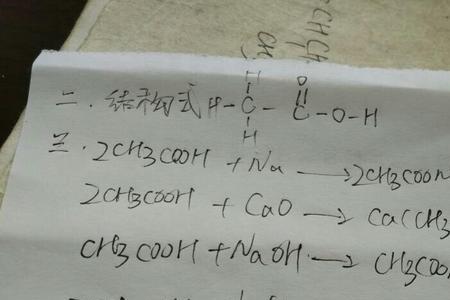 二.结构式 H-C-C-O-H
H
O
H
三.2CH3COOH + Na → 2CH3COON
2CH3COOH + CaO → Ca(CH3
CH3COOH + NaOH → CH3COO